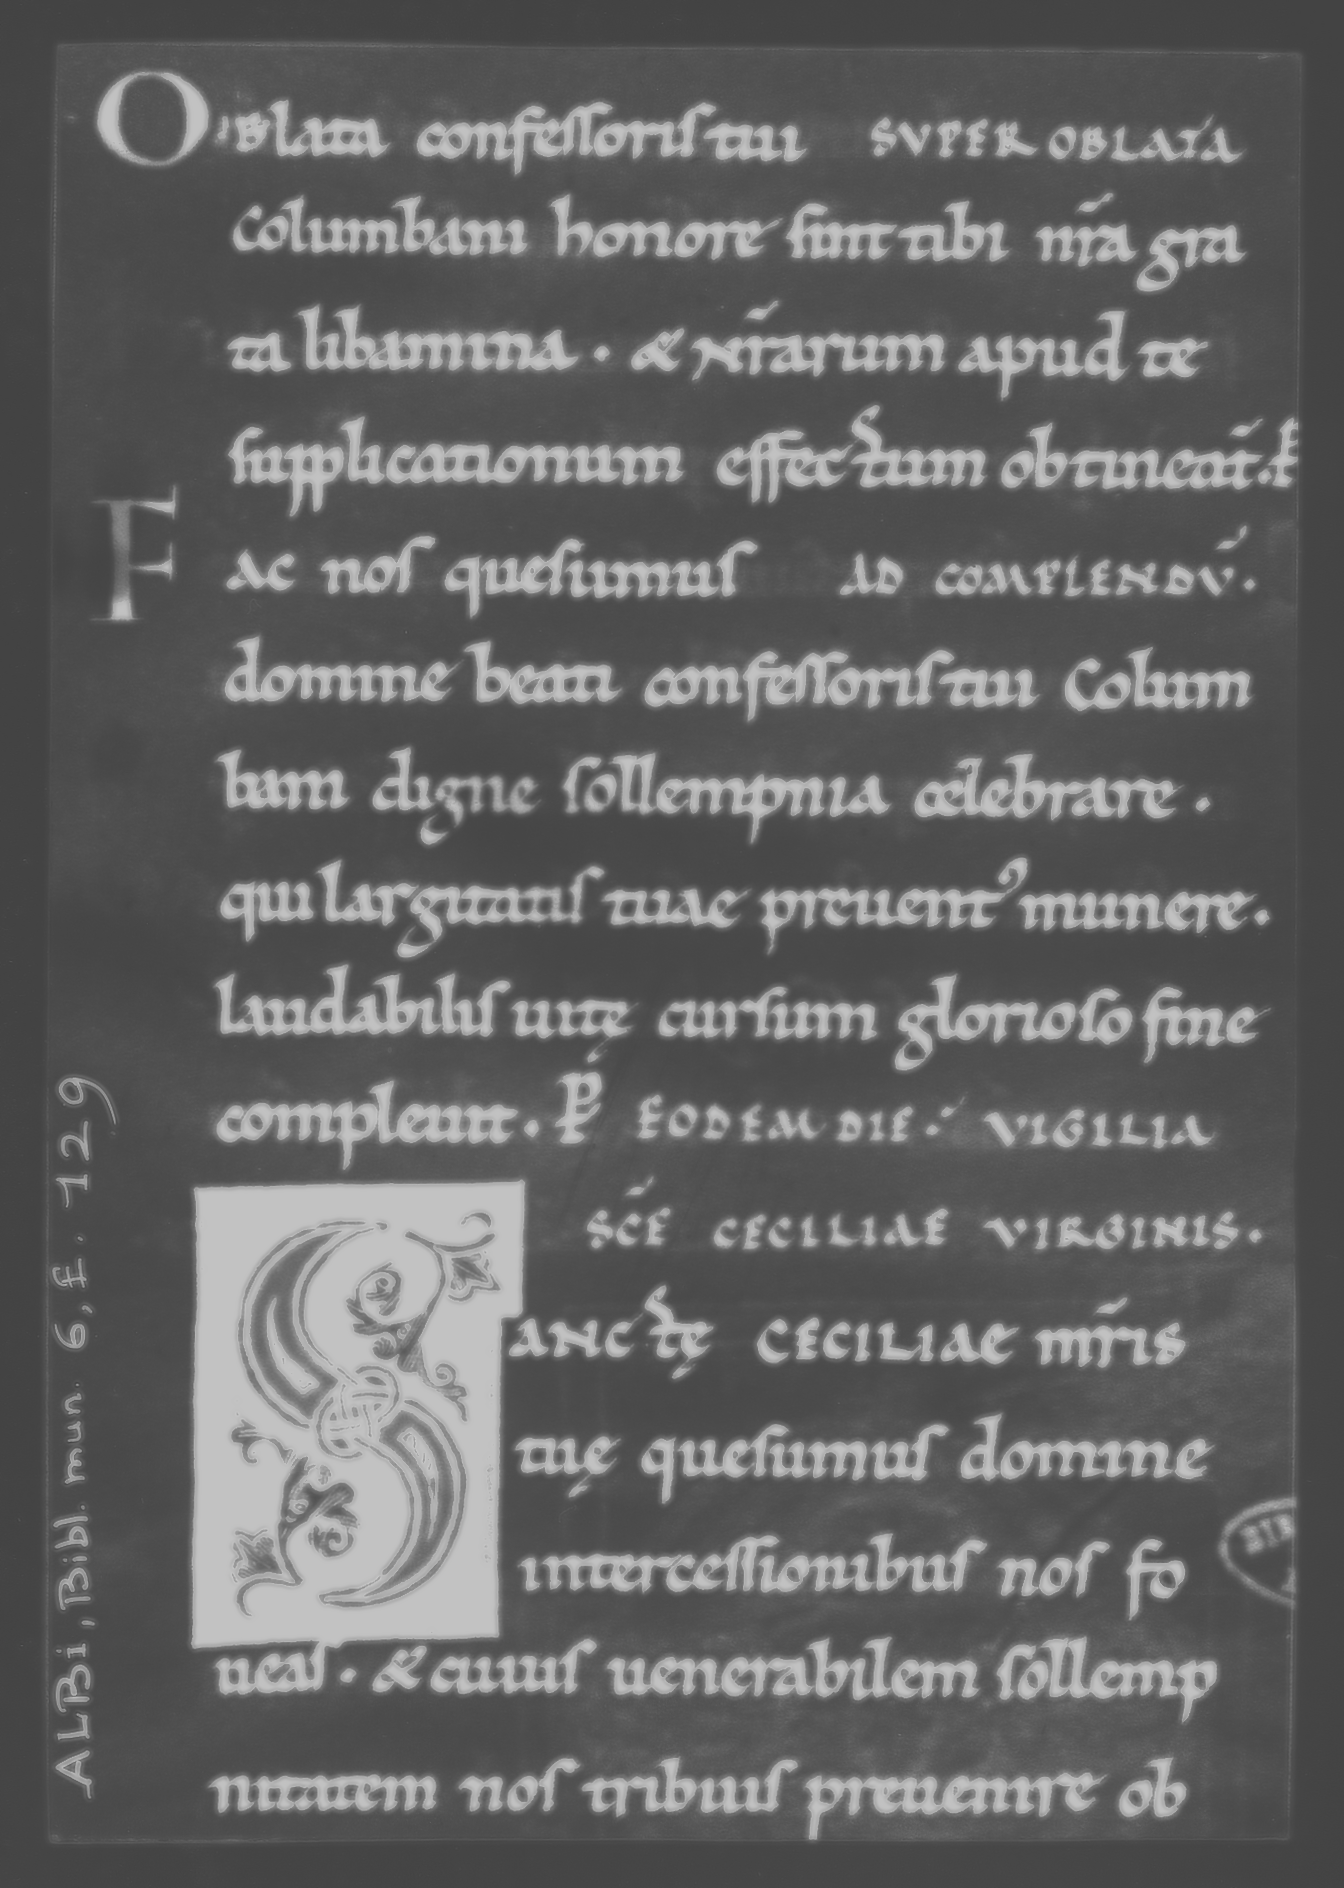 Oblata confessoris tui SUPER OBLATA
Columbani honore sint tibi nr̃a gra
ta libamina · & nr̃arum apud te
supplicationum effectum obtineat̃. P̃
FAC nos quesumus AD COMPLENDV̄.
domine beati confessoris tui Colum
bani digne sollempnia celebrare ·
qui largitatis tuae preuent᾿ munere ·
laudabilis uitę cursum glorioso fine
compleuit · P̃ EODEM DIE · VIGILIA
SC̃E CECILIAE VIRGINIS ·
SANCtę CECILIAE mr̃is
tuę quesumus domine
intercessionibus nos fo
ueas · & cuius uenerabilem sollemp
nitatem nos tribuis preuenire ob
ALBi, Bibl. mun. 6, E. 129
BIB